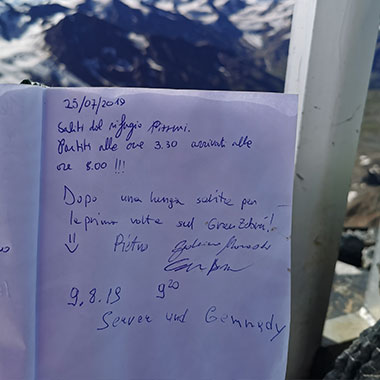 25/07/2019
Saliti dal rifugio Pizzini.
Partiti alle ore 3.30 arrivati alle
ore 8.00 !!!
Dopo una lunga salita per
la prima volta sul Gran Zebrù!
Pietro
9.8.19 9 20
Server und Gennady